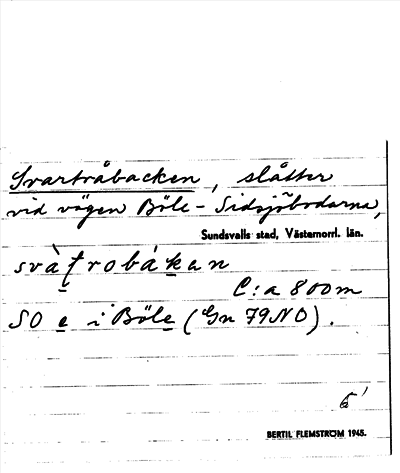 Svartråbacken, slåtter
vid vägen Böle - Sidsjöbodarna,
Sundsvalls stad, Västernorrl. län.
svàt̯robák̯an
C:a 800 m
SO e i Böle (Gn 79NO).
BERTIL FLEMSTRÖM 1945.